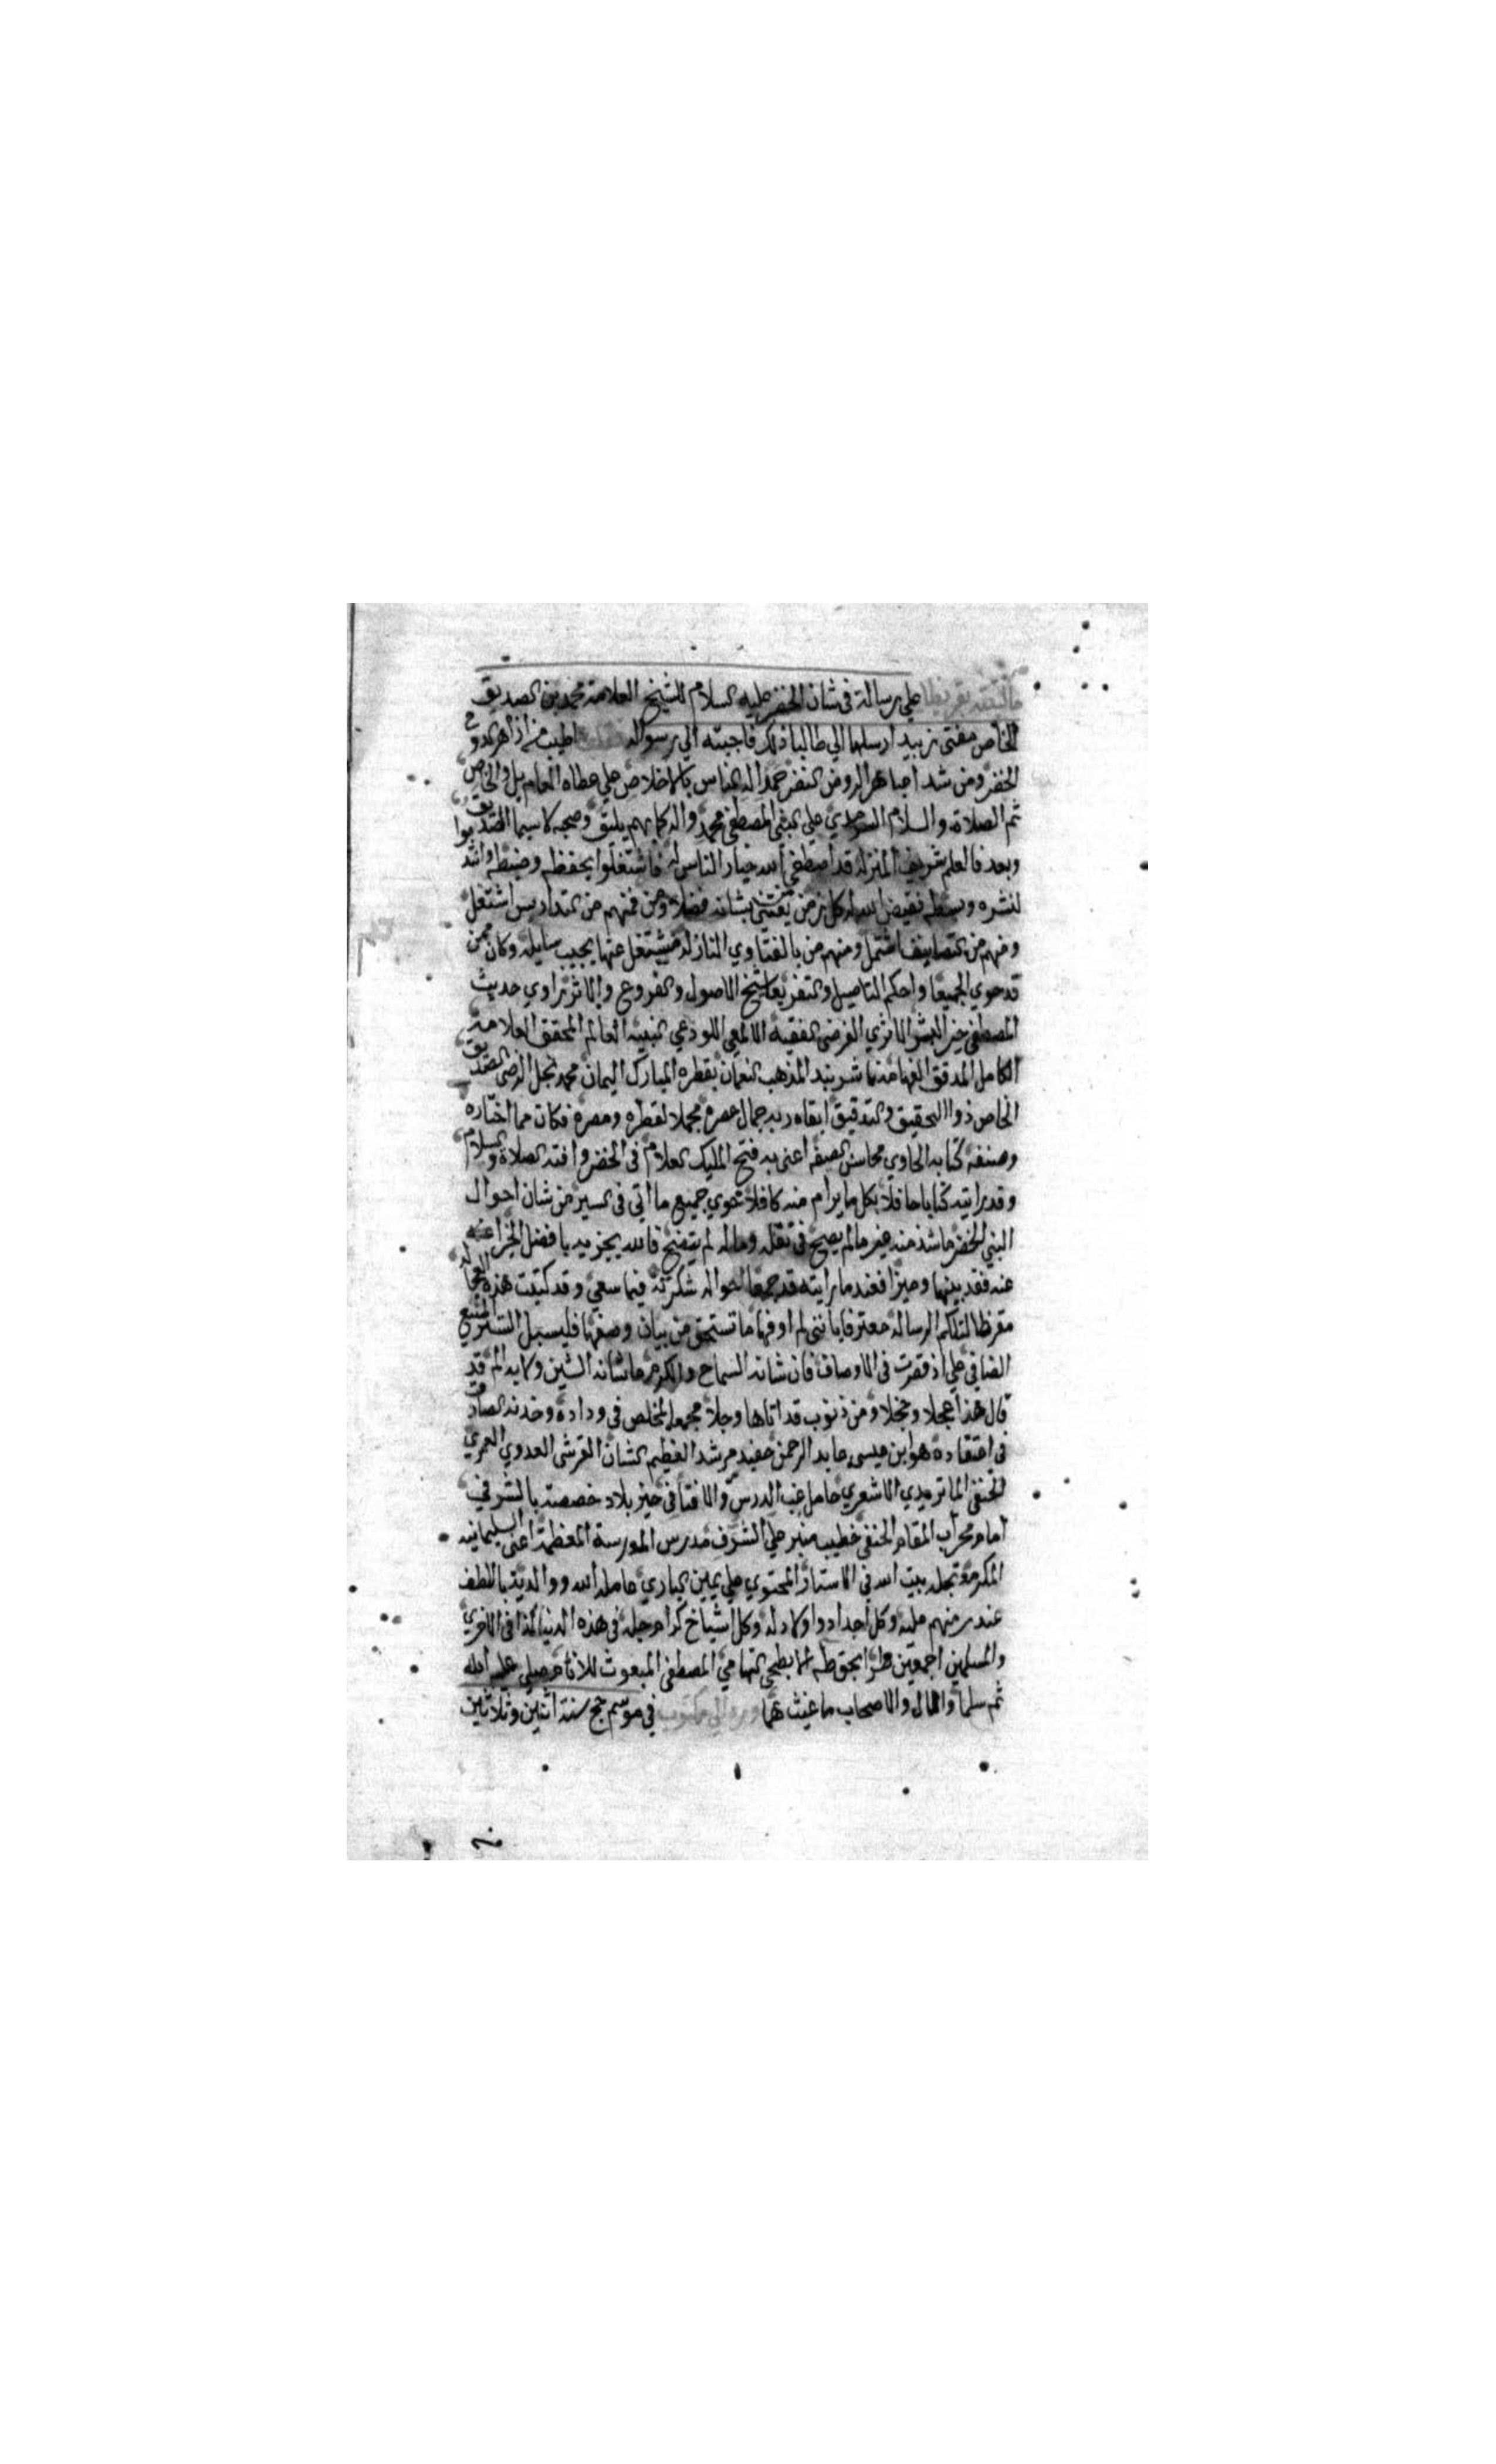 ما كتبته تقريظا علي رسالة في شان الخضر عليه السلام للشيخ العلامة محمد بن الصديق
الخاص مفتي زبيد ارسلها الي طالبا ذلك فاجبته الي رسواله اطيب من ازاهر الدوح
الخضر ومن شذا جباهر الروض النضر حمد اله الناس بالاخلاص علي عطاه العام بل والخاص
ثم الصلاة والسلام السرمدي علي النبي المصطفي محمد واله كما بهم يليق وصحبه لا سيما الصديق
وبعد فالعلم شريف المنزله قد اصطفي الله خيار الناس له فاشتغلوا بحفظه وضبطه وانتدبوا
لنشره وبسطه فقيض الله له كل زمن من يعتني بشانه فضلا ومن فمنهم من بالتداريس اشتغل
ومنهم من بالتصانيف اشتمل ومنهم من بالفتاوي النازله مشتغل عنها يجيب سايله وكان ممن
قد حوي الجميعا واحكم التاصيل والتفريعا شيخ الاصول والفروع والاثر راوي حديث
المصطفي خير البشر الماتريدي الفرضي الفقيه الالمعي اللوذعي النبيه العالم المحقق العلامة
الكامل المدقق الفهامة ناشر بند المذهب النعماني بقطره المبارك اليماني محمد نجل الرضي الصديق
الخاص ذو التحقيق والتدقيق ابقاه ربه جمال عصره مجملا لقطره ومصره فكان مما اختاره
وصنفه كتابه الحاوي محاسن الصفه اعني به فتح المليك العلام في الخضر وافته الصلاة والسلام
وقد رايته كتابا حافلا بكل ما يرام منه كافلا تحوي جميع ما اتي في السير من شان احوال
النبي الخضر ما شذ منه غير ما لم يصح في نقله وما له لم يتضح فالله يجزيه بافضل الجزا عنه
عنه فقد بينها وميزا فعندما رايته قد جمعا احواله شكرته فيما سعي وقد كتبت هذه العجاله
مقرظا لتلكم الرساله معترفا بانني لم اوفها ما تستحق من بيان وصفها فليسبل الستر المنيع
الضافي علي اذ قصرت في الاوصاف فان شانه السماح والكرم ما شانه الشين ولا به الم قد
قال هذا عجلا وخجلا ومن ذنوب قد اتاها وجلا محبه المخلص في وداده وخدنه الصادق
في اعتقاده هو ابن عيسي عابد الرحمن حفيد مرشد العظيم الشان القرشي العدوي العمري
الحنفي الماتريدي الاشعري حامل عب الدرس والافتا في خير بلاد خصصت بالشرف
امام محراب المقام الحنفي خطيب منبر علي الشرف مدرس المدرسة المعظمة اعني السليمانيه
المكرمة تجاه بيت الله في الاستار المحتوي علي يمين الباري عامله الله ووالديه باللطف
عند منهم عليه وكل اجداد واولاد له وكل اشياخ كرام جله في هذه الدنيا كذا في الاخري
والمسلمين اجمعين طرا بحق طه الابطحي التهامي المصطفي المبعوث للانام صلي عليه الله
ثم سلما والال والاصحاب ما غيث هما ورد الي مكتوب في موسم حج سنة اثنين وثلاثين